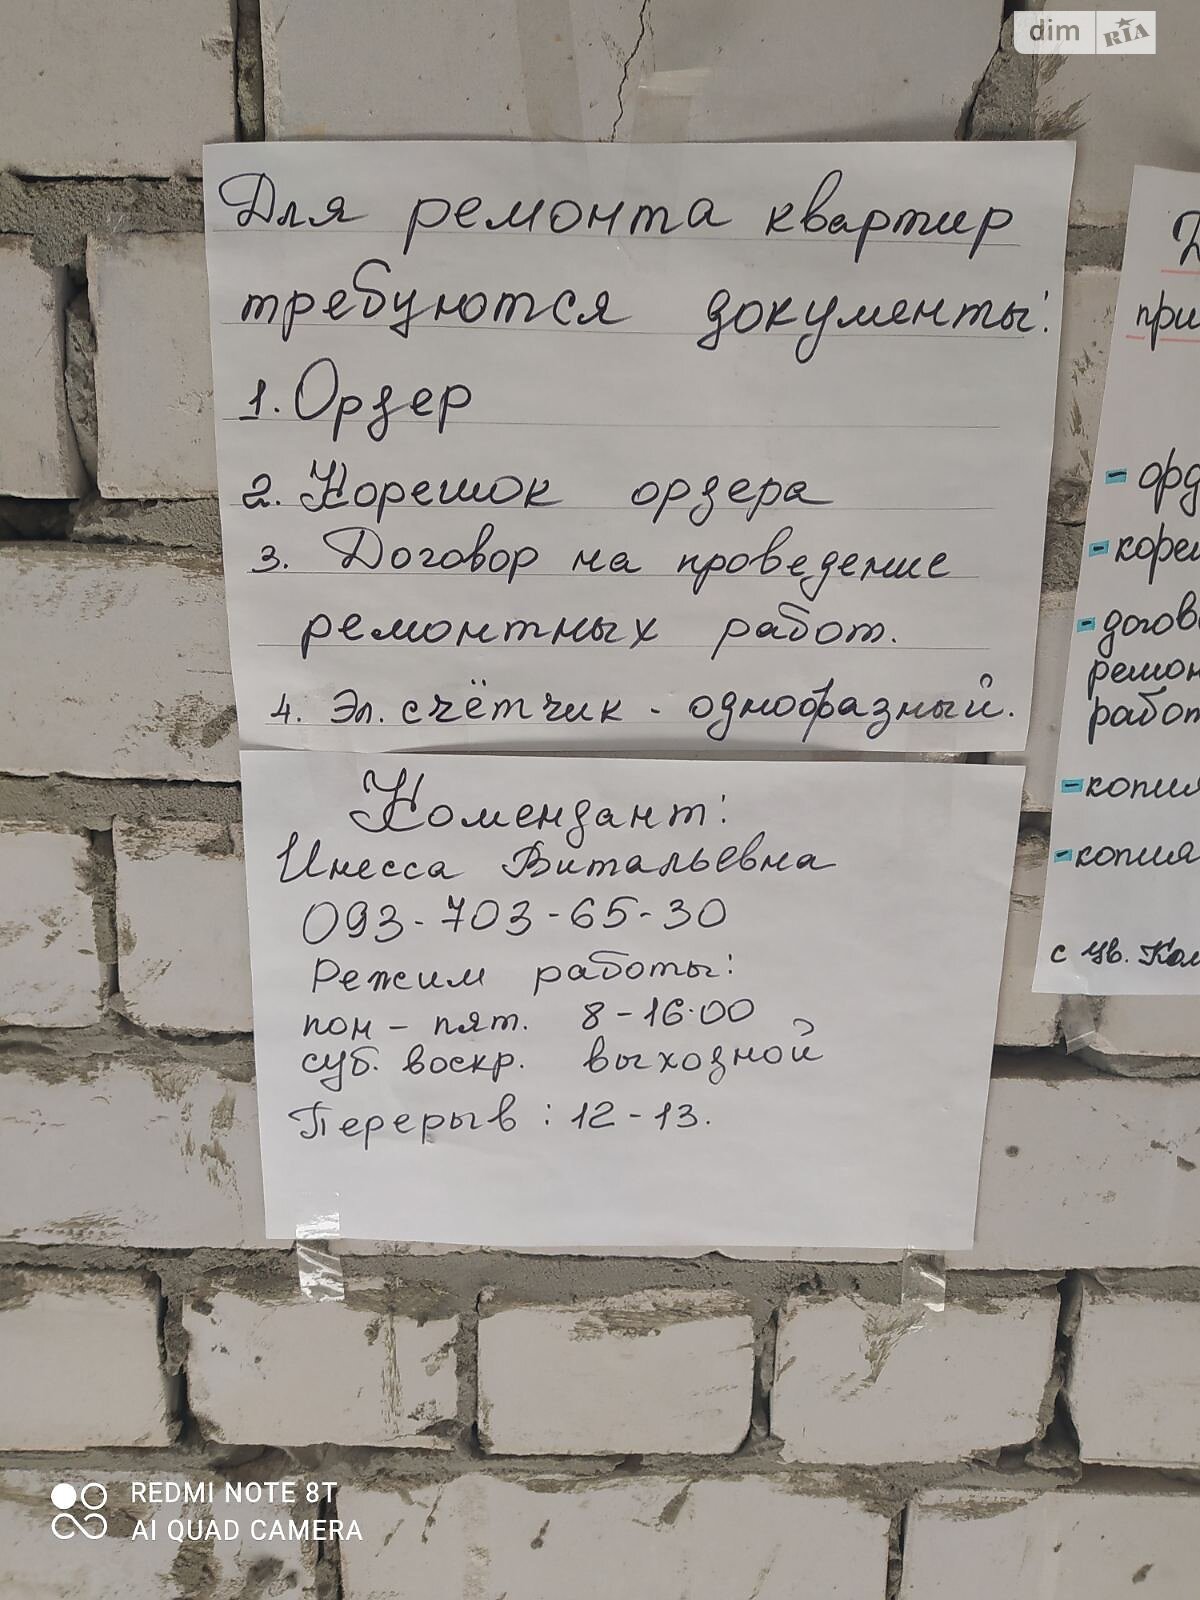 dim RIA
Для ремонта квартир
требуются документы:
1. Ордер
2. Корешок ордера
3. Договор на проведение
ремонтных работ.
4. Эл. счётчик - однофразный.
Комендант:
Инесса Витальевна
093-703-65-30
Режим работы:
пон - пят. 8-16.00
суб. воскр. выходной
Перерыв: 12-13.
Д
при
- орд
- кореш
- догово
ремон
работ
- копия
- копия
с ув. Ком
REDMI NOTE 8T
AI QUAD CAMERA